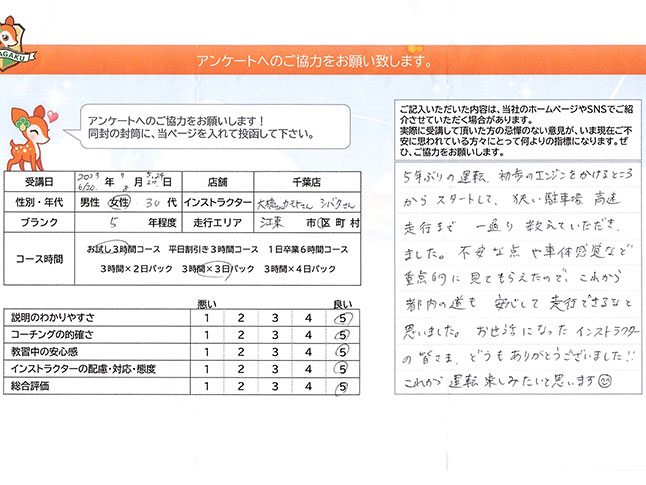 AGAKU
アンケートへのご協力をお願い致します。
アンケートへのご協力をお願いします！
同封の封筒に、当ページを入れて投函して下さい。
ご記入いただいた内容は、当社のホームページやSNSでご紹
介させていただく場合があります。
実際に受講して頂いた方の忌憚のない意見が、いま現在ご不
安に思われている方々にとって何よりの指標になります。ぜ
ひ、ご協力をお願いします。
受講日 年 月 日 店舗 千葉店
性別・年代 男性 女性 30代 インストラクター 大橋さん
ブランク 5 年程度 走行エリア 江東 市区町村
コース時間 お試し3時間コース 平日割引き3時間コース 1日卒業6時間コース
3時間×2日パック 3時間×3日パック 3時間×4日パック
悪い 良い
説明のわかりやすさ 1 2 3 4 5
コーチングの的確さ 1 2 3 4 5
教習中の安心感 1 2 3 4 5
インストラクターの配慮・対応・態度 1 2 3 4 5
総合評価 1 2 3 4 5
5年ぶりの運転、初歩のエンジンをかけるところ
からスタートして、狭い駐車場、高速
走行まで 一通り 教えていただき
ました。不安な点や車体感覚など
重点的に見てもらえたので、これから
都内の道も 安心して走行できるなと
思いました。お世話になったインストラクター
の皆さま、どうもありがとうございました!!
これから運転楽しみたいと思います